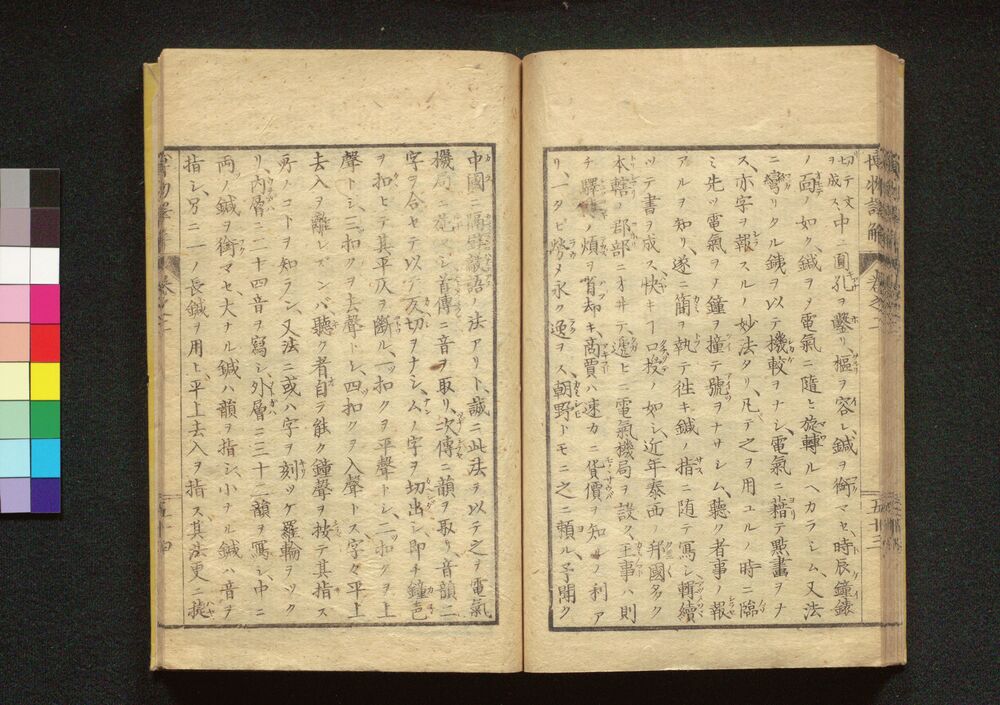 切テ文ヲ成ス、中ニ圓孔ヲ鑿リ、樞ヲ容レ、鍼ヲ銜マセ、時辰鐘錶
ノ面ノ如ク、鍼ヲノ電氣ニ隨ヒ旋轉ルヘカラシム、又法
ニ彎リタル銕ヲ以テ機較ヲナシ、電氣ニ藉テ點畫ヲナ
ス、亦字ヲ報スルノ妙法タリ、凡テ之ヲ用ユルノ時ニ臨
ミ、先ツ電氣ヲノ鐘ヲ撞テ號ヲナサシム、聽ク者事ノ報
アルヲ知リ、遂ニ簡ヲ執テ徃キ鍼ノ指ニ随テ寫シ、輯續
ツテ書ヲ成ス、快キヿ口授ノ如シ、近年泰西ノ邦國多ク
本轄ノ郡部ニオ井テ、遞ヒニ電氣機局ヲ設ク、王事ハ則
チ驛ノ煩ヲ省却キ、商賈ハ速カニ貨價ヲ知ルノ利ア
リ、一タビ勞メ永ク逸ヲス、朝野トモニ之ニ頼ル、予聞ク
中國ニ隔 語ノ法アリト、誠ニ此法ヲ以テ之ヲ電氣
機局ニ施ベシ、首傳ニ音ヲ取リ、次傳ニ韻ヲ取リ、音韻二
字ヲ合セテ以テ反切ヲナシ、ムノ字ヲ切出シ、即チ鐘邑
ヲ扣ヒテ其平仄ヲ斷ル、一扣クヲ平聲トシ、二扣クヲ上
聲トシ、三扣クヲ去聲トシ、四扣クヲ入聲トス、字々平上
去入ヲ離レズンバ、聽ク者自ラ能ク鐘聲ヲ按テ其指ス
所ノコトヲ知ラン、又法ニ或ハ字ヲ刻ツケ羅輪ヲツク
リ、内層ニ二十四音ヲ寫シ、外層ニ三十二韻ヲ寫シ、中ニ
両ノ鍼ヲ銜マセ、大ナル鍼ハ韻ヲ指シ、小ナル鍼ハ音ヲ
指シ、另ニ一ノ長鍼ヲ用ヒ、平上去入ヲ指ス、其法更ニ捷